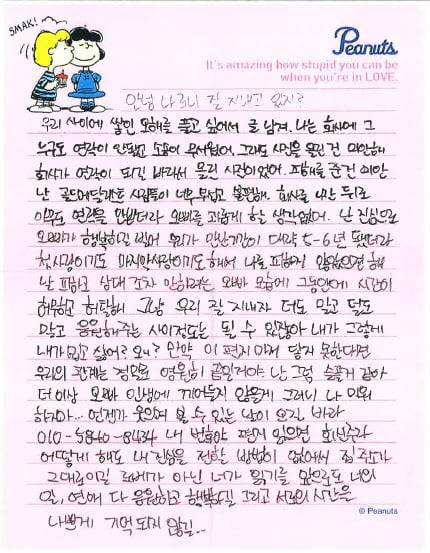 SMAK!
Peanuts
It's amazing how stupid you can be
when you're in LOVE.
안녕 나르니 잘 지내고 있지?
우리 사이에 쌓인 오해를 풀고 싶어서 글 남겨. 나는 회사에 그
누구도 연락이 안됐고 소송이 무서웠어. 그래도 사진을 올린건 미안해
회사가 연락이 되길 바래서 올린 사진이었어. 피해를 준건 미안
난 골드메달리스트 사람들이 너무 무섭고 불편해. 회사를 나간 뒤로
아무도 연락을 안받더라 오빠를 괴롭게 할 생각없어. 난 진심으로
오빠가 행복하길 빌어 우리가 만난기간이 대략 5-6년 됐더라
첫사랑이기도 마지막사랑이기도해서 나를 피하진 않았으면 해
난 피하고 상대 조차 안하려는 오빠 모습에 그동안에 시간이
허무하고 허탈해 그냥 우리 잘 지내자 더도 말고 덜도
말고 응원해주는 사이정도는 될 수 있잖아 내가 그렇게
내가 밉고 싫어? 왜? 만약 이 편지마저 닿지 못한다면
우리의 관계는 정말로 영원히 끝일거야 난 그럼 슬플거 같아
더이상 오빠 인생에 끼어들지 않을게 그러니 나 미워
하지마... 언젠가 웃으며 볼 수 있는 날이 오길 바라
010-5840-8434 내 번호야 편지 읽으면 회신주라
어떻게 해도 내 진심을 전할 방법이 없어서 집주소가
그대로이길 로버가 아닌 너가 읽기를 앞으로도 너의
일, 연애 다 응원하고 행복하길 그리고 서로의 시간을
나쁘게 기억되지 않길..
© Peanuts